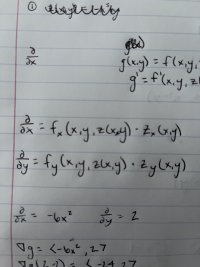 ①
∂/∂x
g(x,y) = f(x,y,
g' = f'(x,y,z
∂/∂x = fₓ(x,y,z(x,y)) · zₓ(x,y)
∂/∂y = f_y(x,y,z(x,y)) · z_y(x,y)
∂/∂x = -6x² ∂/∂y = 2
∇g = <-6x², 2>